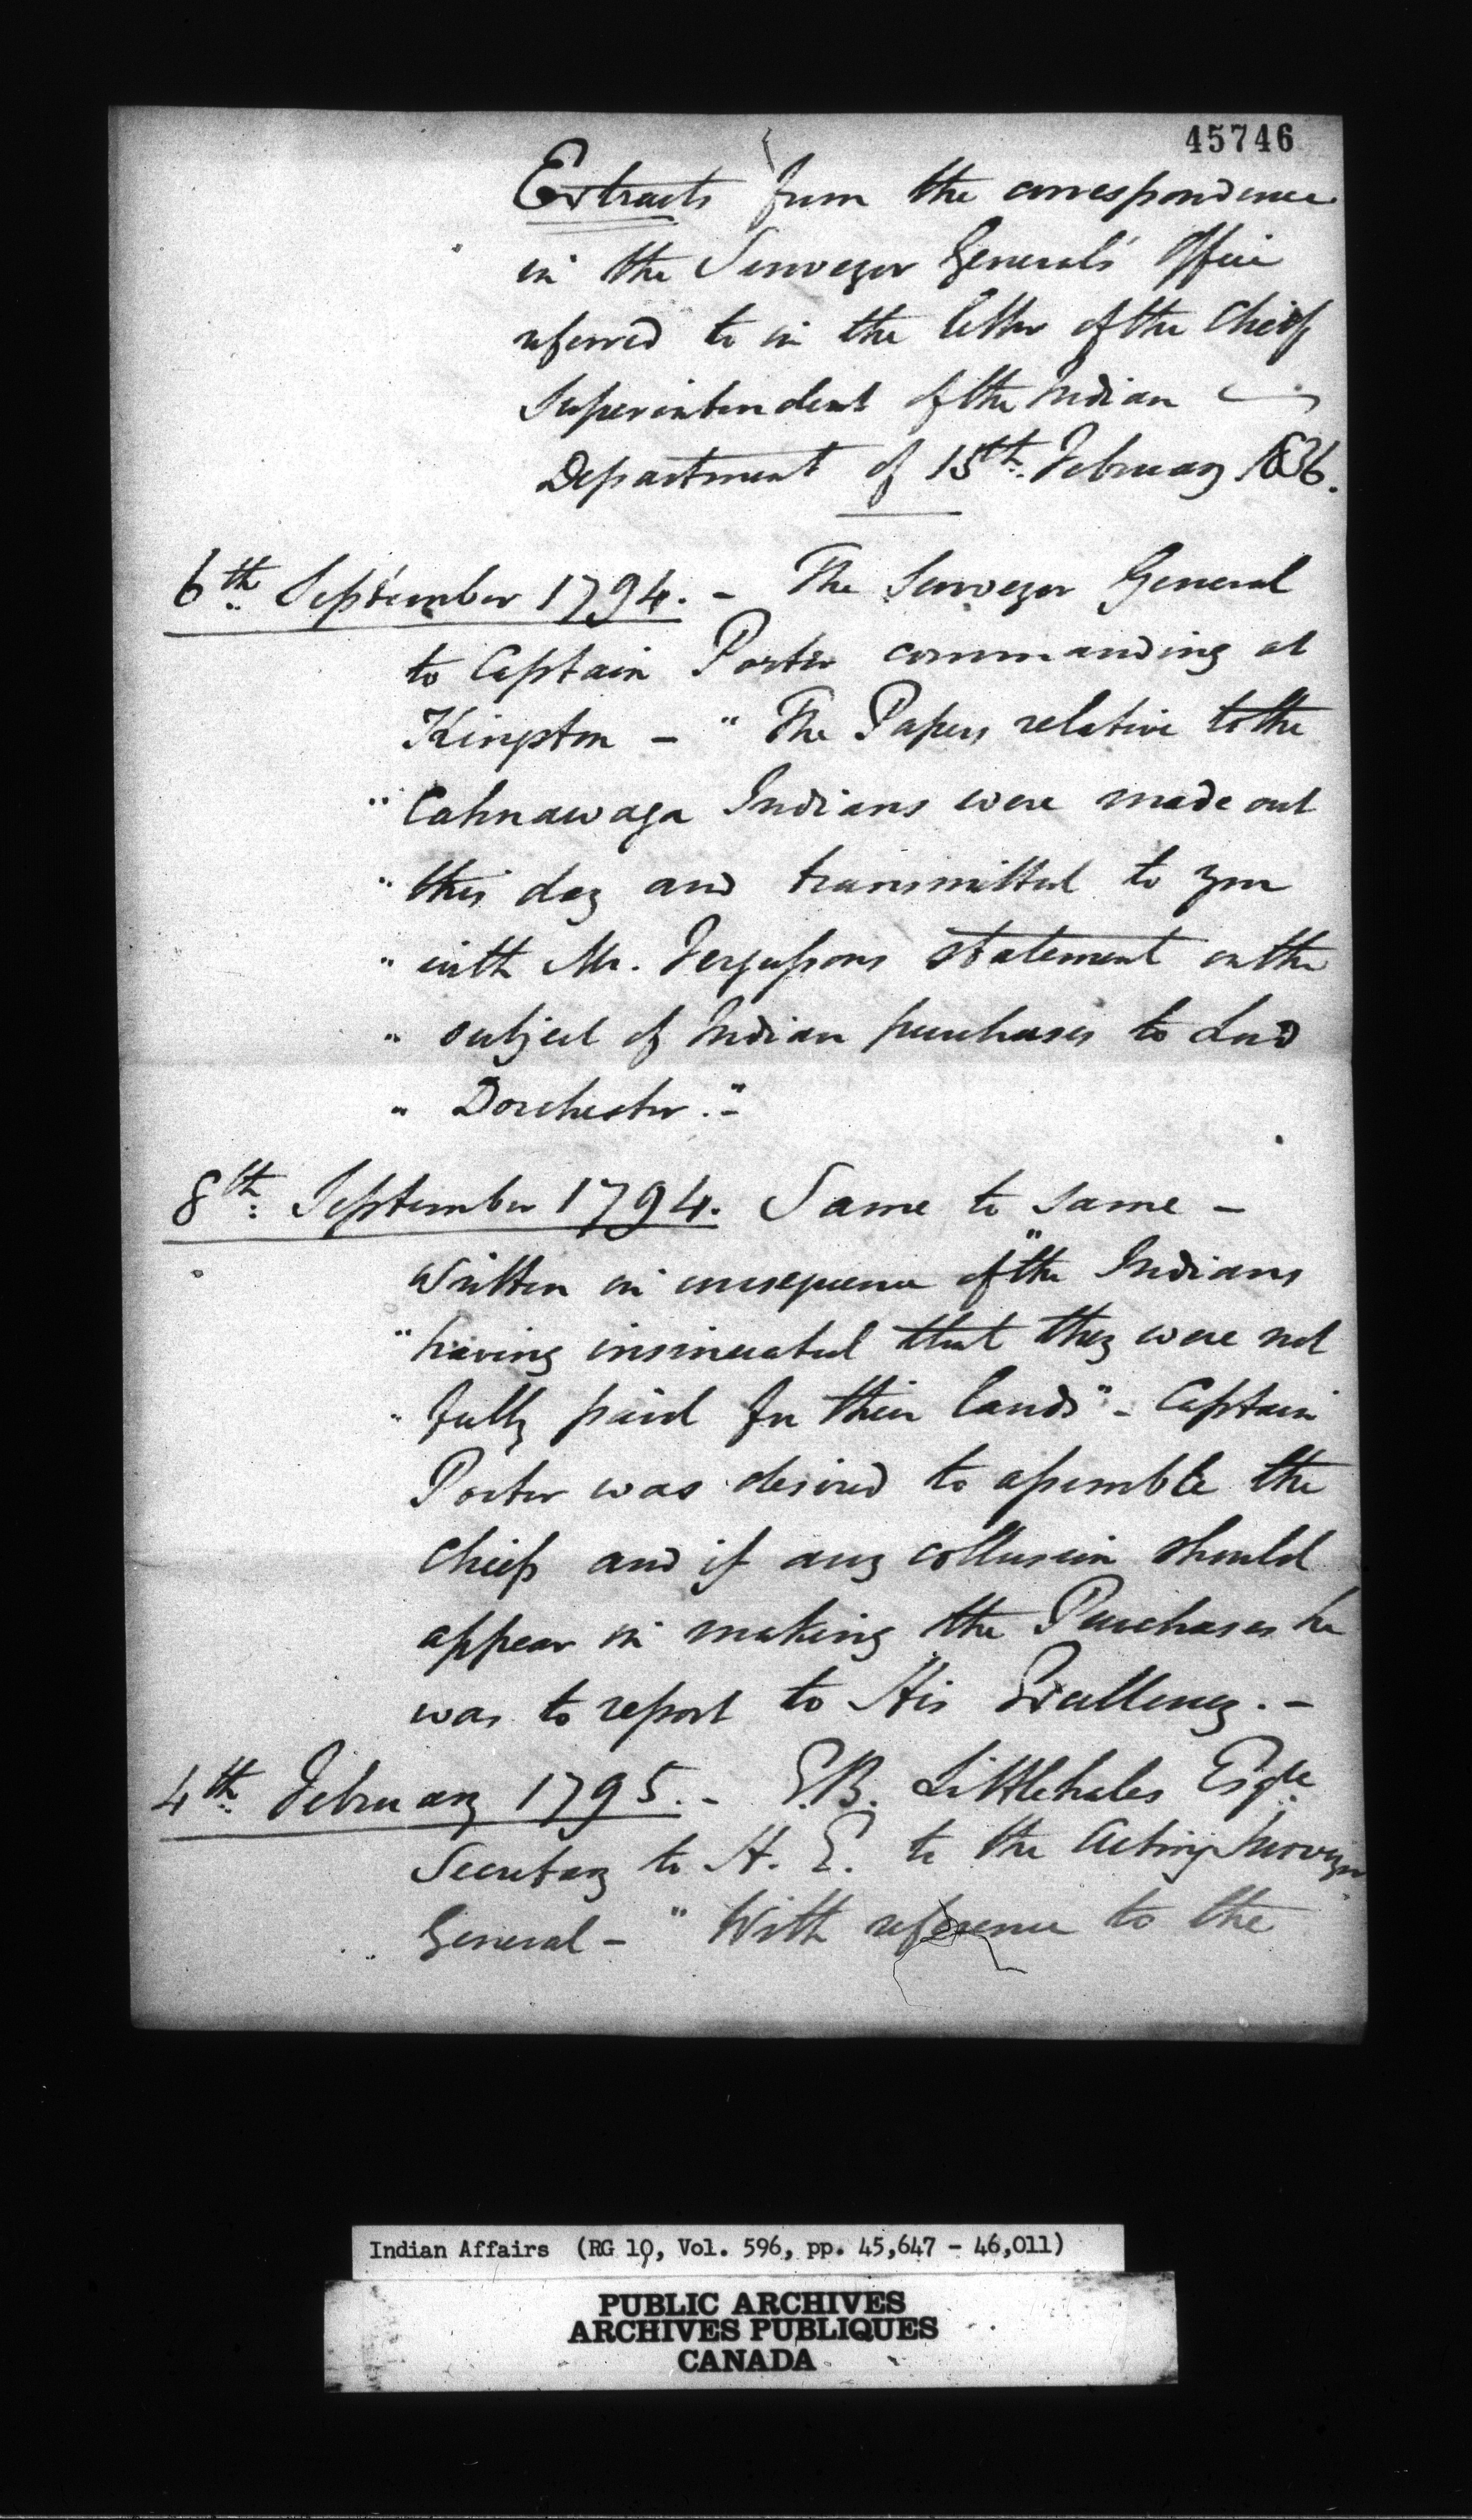 45746
Extracts from the correspondence
in the Surveyor General's Office
referred to in the letter of the Chief
Superintendent of the Indian
Department of 15th February 1836.
6th September 1794. - The Surveyor General
to Captain Porter commanding at
Kingston - " The Papers relative to the
" Cahnawaga Indians were made out
" this day and transmitted to you
" with Mr. Fergussons statement on the
" subject of Indian purchases to Lord
" Dorchester." -
8th September 1794. Same to same -
Written in consequence of "the Indians
" having insinuated that they were not
" fully paid for their lands" - Captain
Porter was desired to assemble the
Chiefs and if any collusion should
appear in making the Purchases he
was to report to His Excellency. -
4th February 1795. - E.B. Littlehales Esqre
Secretary to H. E. to the Acting Surveyor
General - " With reference to the
Indian Affairs (RG 10, Vol. 596, pp. 45,647 - 46,011)
PUBLIC ARCHIVES
ARCHIVES PUBLIQUES
CANADA